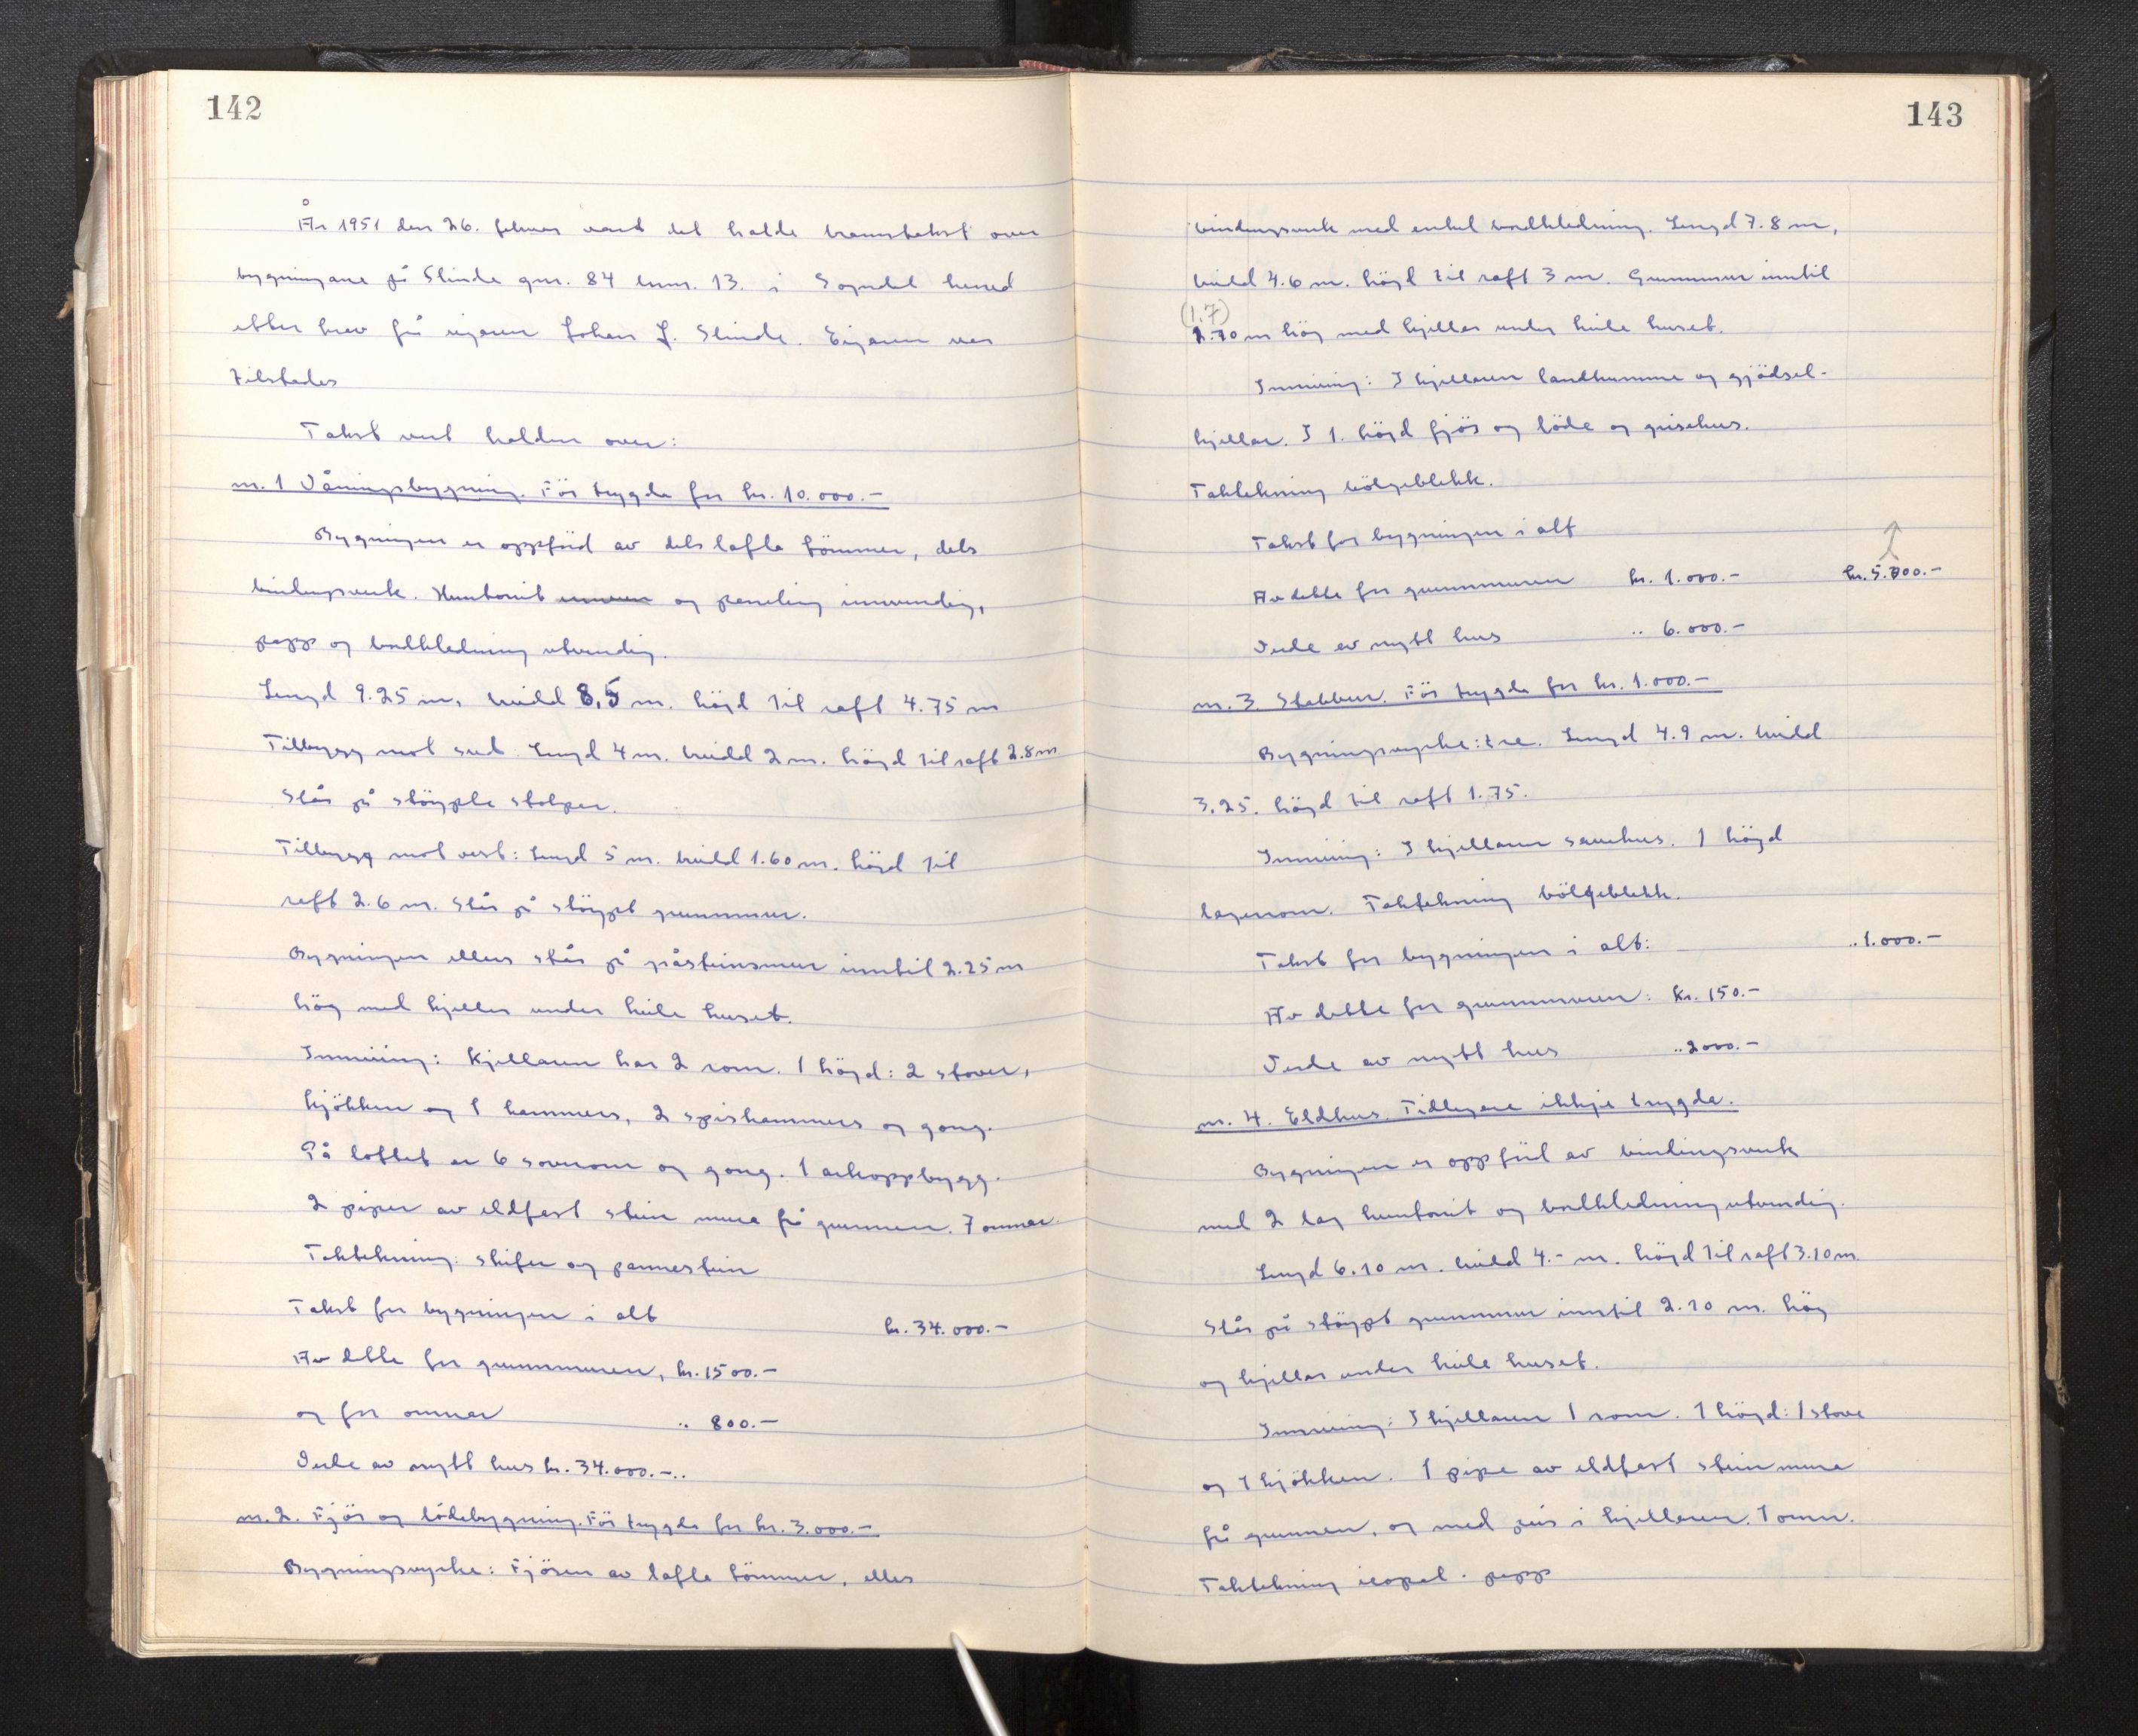 142
År 1951 den 26. februar vart det halde branntakst over
bygningane på Slinde gnr. 84 bnr. 13. i Sogndal herred
etter krav frå eigaren Johan J. Slinde. Eigaren var
tilstades
Takst vert halden over:
nr. 1 Våningsbygning. Før trygda for kr. 10.000.-
Bygningen er oppförd av dels lafta tömmer, dels
bindingsverk. Huntonit og paneling innvendig,
papp og bordkledning utvendig.
Lengd 9.25 m, breidd 8,5 m. högd til raft 4.75 m
Tilbygg mot sud. Lengd 4 m. breidd 2 m. högd til raft 2.8 m
Står på stöypte stolpar.
Tilbygg mot vest: Lengd 5 m. breidd 1.60 m. högd til
raft 2.6 m. Står på stöypt grunnmur.
Bygningen ellers står på gråsteinsmur inntil 2.25 m
hög med kjellar under heile huset.
Innreiing: Kjellaren har 2 rom. 1 högd: 2 stover,
kjökken og 1 kammers, 2 spiskammers og gong.
På loftet er 6 soverom og gong. 1 arkoppbygg.
2 piper av eldfast stein mura frå grunnen. 7 omnar.
Taktekning: skifer og pannestein
Takst for bygningen i alt kr. 34.000.-
Av dette for grunnmuren, kr. 1500.-
og for omnar " 800.-
Verde av nytt hus kr. 34.000.-..
nr. 2. Fjös og lödebygning. Før trygda for kr. 3.000.-
Bygningsvyrke: Fjösen av lafta tömmer, elles
143
bindingsverk med enkel bordkledning. Lengd 7.8 m,
breidd 4.6 m. högd til raft 3 m. Grunnmur inntil
(1.7)
1.70 m hög med kjellar under heile huset.
Innreiing: I kjellaren landkumme og gjödsel-
kjellar. I 1. högd fjös og löde og grisehus.
Taktekning bölgeblekk.
Takst for bygningen i alt
Av dette for grunnmuren kr. 1.000.- kr. 5.000.-
Verde av nytt hus " 6.000.-
nr. 3. Stabbur. Før trygda for kr. 1.000.-
Bygningsvyrke: tre. Lengd 4.9 m. breidd
3.25. högd til raft 1.75.
Innreiing: I kjellaren sauehus. 1 högd
lagerrom. Taktekning bölgeblekk.
Takst for bygningen i alt: " 1.000.-
Av dette for grunnmuren: kr. 150.-
Verde av nytt hus " 2000.-
nr. 4. Eldhus. Tidlegare ikkje trygda.
Bygningen er oppförd av bindingsverk
med 2 lag huntonit og bordkledning utvendig.
Lengd 6.10 m. breidd 4.- m. högd til raft 3.10 m
Står på stöypt grunnmur inntil 2.10 m. hög
og kjellar under heile huset.
Innreiing: I kjellaren 1 rom. 1 högd: 1 stove
og 1 kjökken. 1 pipe av eldfast stein mura
frå grunnen, og med peis i kjellaren. 1 omn.
Taktekning papp